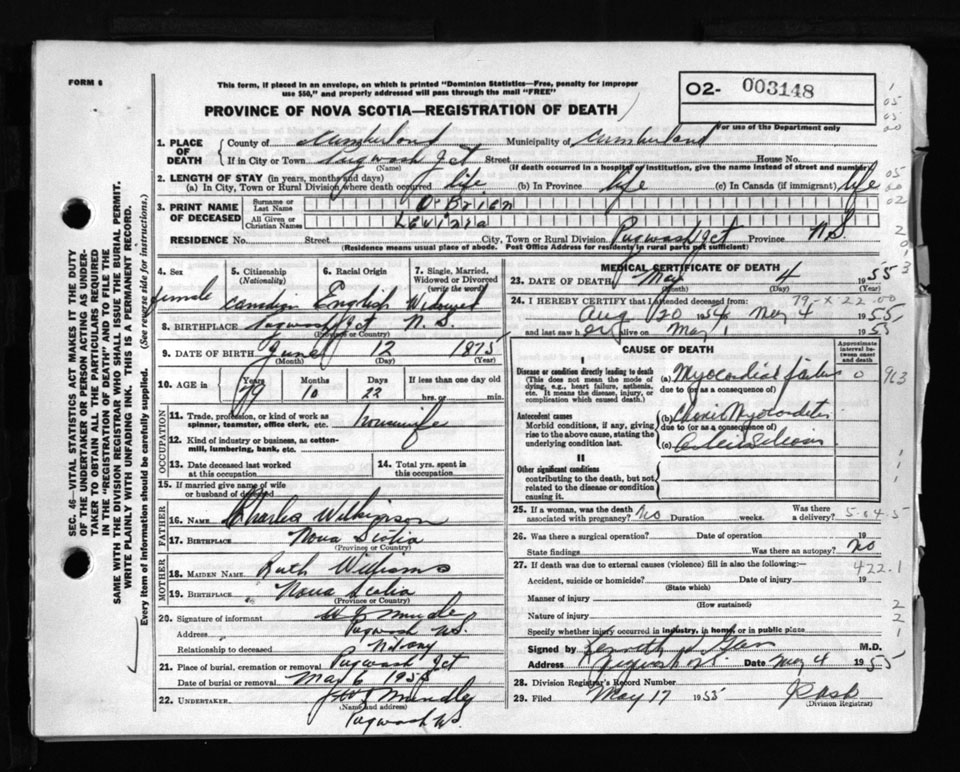 FORM 6
This form, if placed in an envelope, on which is printed "Dominion Statistics—Free, penalty for improper
use $50," and properly addressed will pass through the mail "FREE"
02- 003148
PROVINCE OF NOVA SCOTIA—REGISTRATION OF DEATH
For use of the Department only
1. PLACE OF DEATH
County of Cumberland Municipality of Cumberland
If in City or Town Pugwash Jct Street House No.
(Name) (If death occurred in a hospital or institution, give the name instead of street and number)
2. LENGTH OF STAY (in years, months and days)
(a) In City, Town or Rural Division where death occurred life (b) In Province life (c) In Canada (if immigrant) life
3. PRINT NAME OF DECEASED
Surname or Last Name O'Brien
All Given or Christian Names Levinia
RESIDENCE No. Street City, Town or Rural Division Pugwash Jct Province N.S
(Residence means usual place of abode. Post Office Address for residents in rural parts not sufficient)
4. Sex female
5. Citizenship (Nationality) Canadian
6. Racial Origin English
7. Single, Married, Widowed or Divorced (write the word) Widowed
8. BIRTHPLACE Pugwash Jct N.S.
(Province or Country)
9. DATE OF BIRTH June 12 1875
(Month) (Day) (Year)
10. AGE in Years 79 Months 10 Days 22 If less than one day old hrs. or min.
OCCUPATION
11. Trade, profession, or kind of work as spinner, teamster, office clerk, etc. Housewife
12. Kind of industry or business, as cotton-mill, lumbering, bank, etc.
13. Date deceased last worked at this occupation
14. Total yrs. spent in this occupation
15. If married give name of wife or husband of deceased
FATHER
16. NAME Charles Wilkinson
17. BIRTHPLACE Nova Scotia
(Province or Country)
MOTHER
18. MAIDEN NAME Ruth Williams
19. BIRTHPLACE Nova Scotia
(Province or Country)
20. Signature of informant
Address Pugwash N.S.
Relationship to deceased
21. Place of burial, cremation or removal Pugwash Jct
Date of burial or removal May 6 1955
22. UNDERTAKER
(Name and address)
Pugwash N.S.
MEDICAL CERTIFICATE OF DEATH
23. DATE OF DEATH May 4 1955
(Month) (Day) (Year)
24. I HEREBY CERTIFY that I attended deceased from: 79-X 22.00
Aug 20 1954 to May 4 1955
and last saw her alive on May 1 1955
CAUSE OF DEATH
Approximate interval between onset and death
I
Disease or condition directly leading to death
(This does not mean the mode of dying, e.g., heart failure, asthenia, etc. It means the disease, injury, or complication which caused death.)
(a) Myocardial failure 0
due to (or as a consequence of)
Antecedent causes
Morbid conditions, if any, giving rise to the above cause, stating the underlying condition last.
(b) Chronic Myocarditis
due to (or as a consequence of)
(c)
II
Other significant conditions
contributing to the death, but not related to the disease or condition causing it.
25. If a woman, was the death associated with pregnancy? No Duration weeks. Was there a delivery?
26. Was there a surgical operation? Date of operation 19
State findings Was there an autopsy? no
27. If death was due to external causes (violence) fill in also the following:— 422.1
Accident, suicide or homicide? Date of injury 19
(State which)
Manner of injury
(How sustained)
Nature of injury
Specify whether injury occurred in industry, in home, or in public place
Signed by M.D.
Address Pugwash N.S. Date May 4 1955
28. Division Registrar's Record Number
29. Filed May 17 1955
(Division Registrar)
SEC. 46—VITAL STATISTICS ACT MAKES IT THE DUTY
OF THE UNDERTAKER OR PERSON ACTING AS UNDER-
TAKER TO OBTAIN ALL THE PARTICULARS REQUIRED
IN THE "REGISTRATION OF DEATH" AND TO FILE THE
SAME WITH THE DIVISION REGISTRAR WHO SHALL ISSUE THE BURIAL PERMIT.
WRITE PLAINLY WITH UNFADING INK. THIS IS A PERMANENT RECORD.
Every item of information should be carefully supplied. (See reverse side for instructions.)